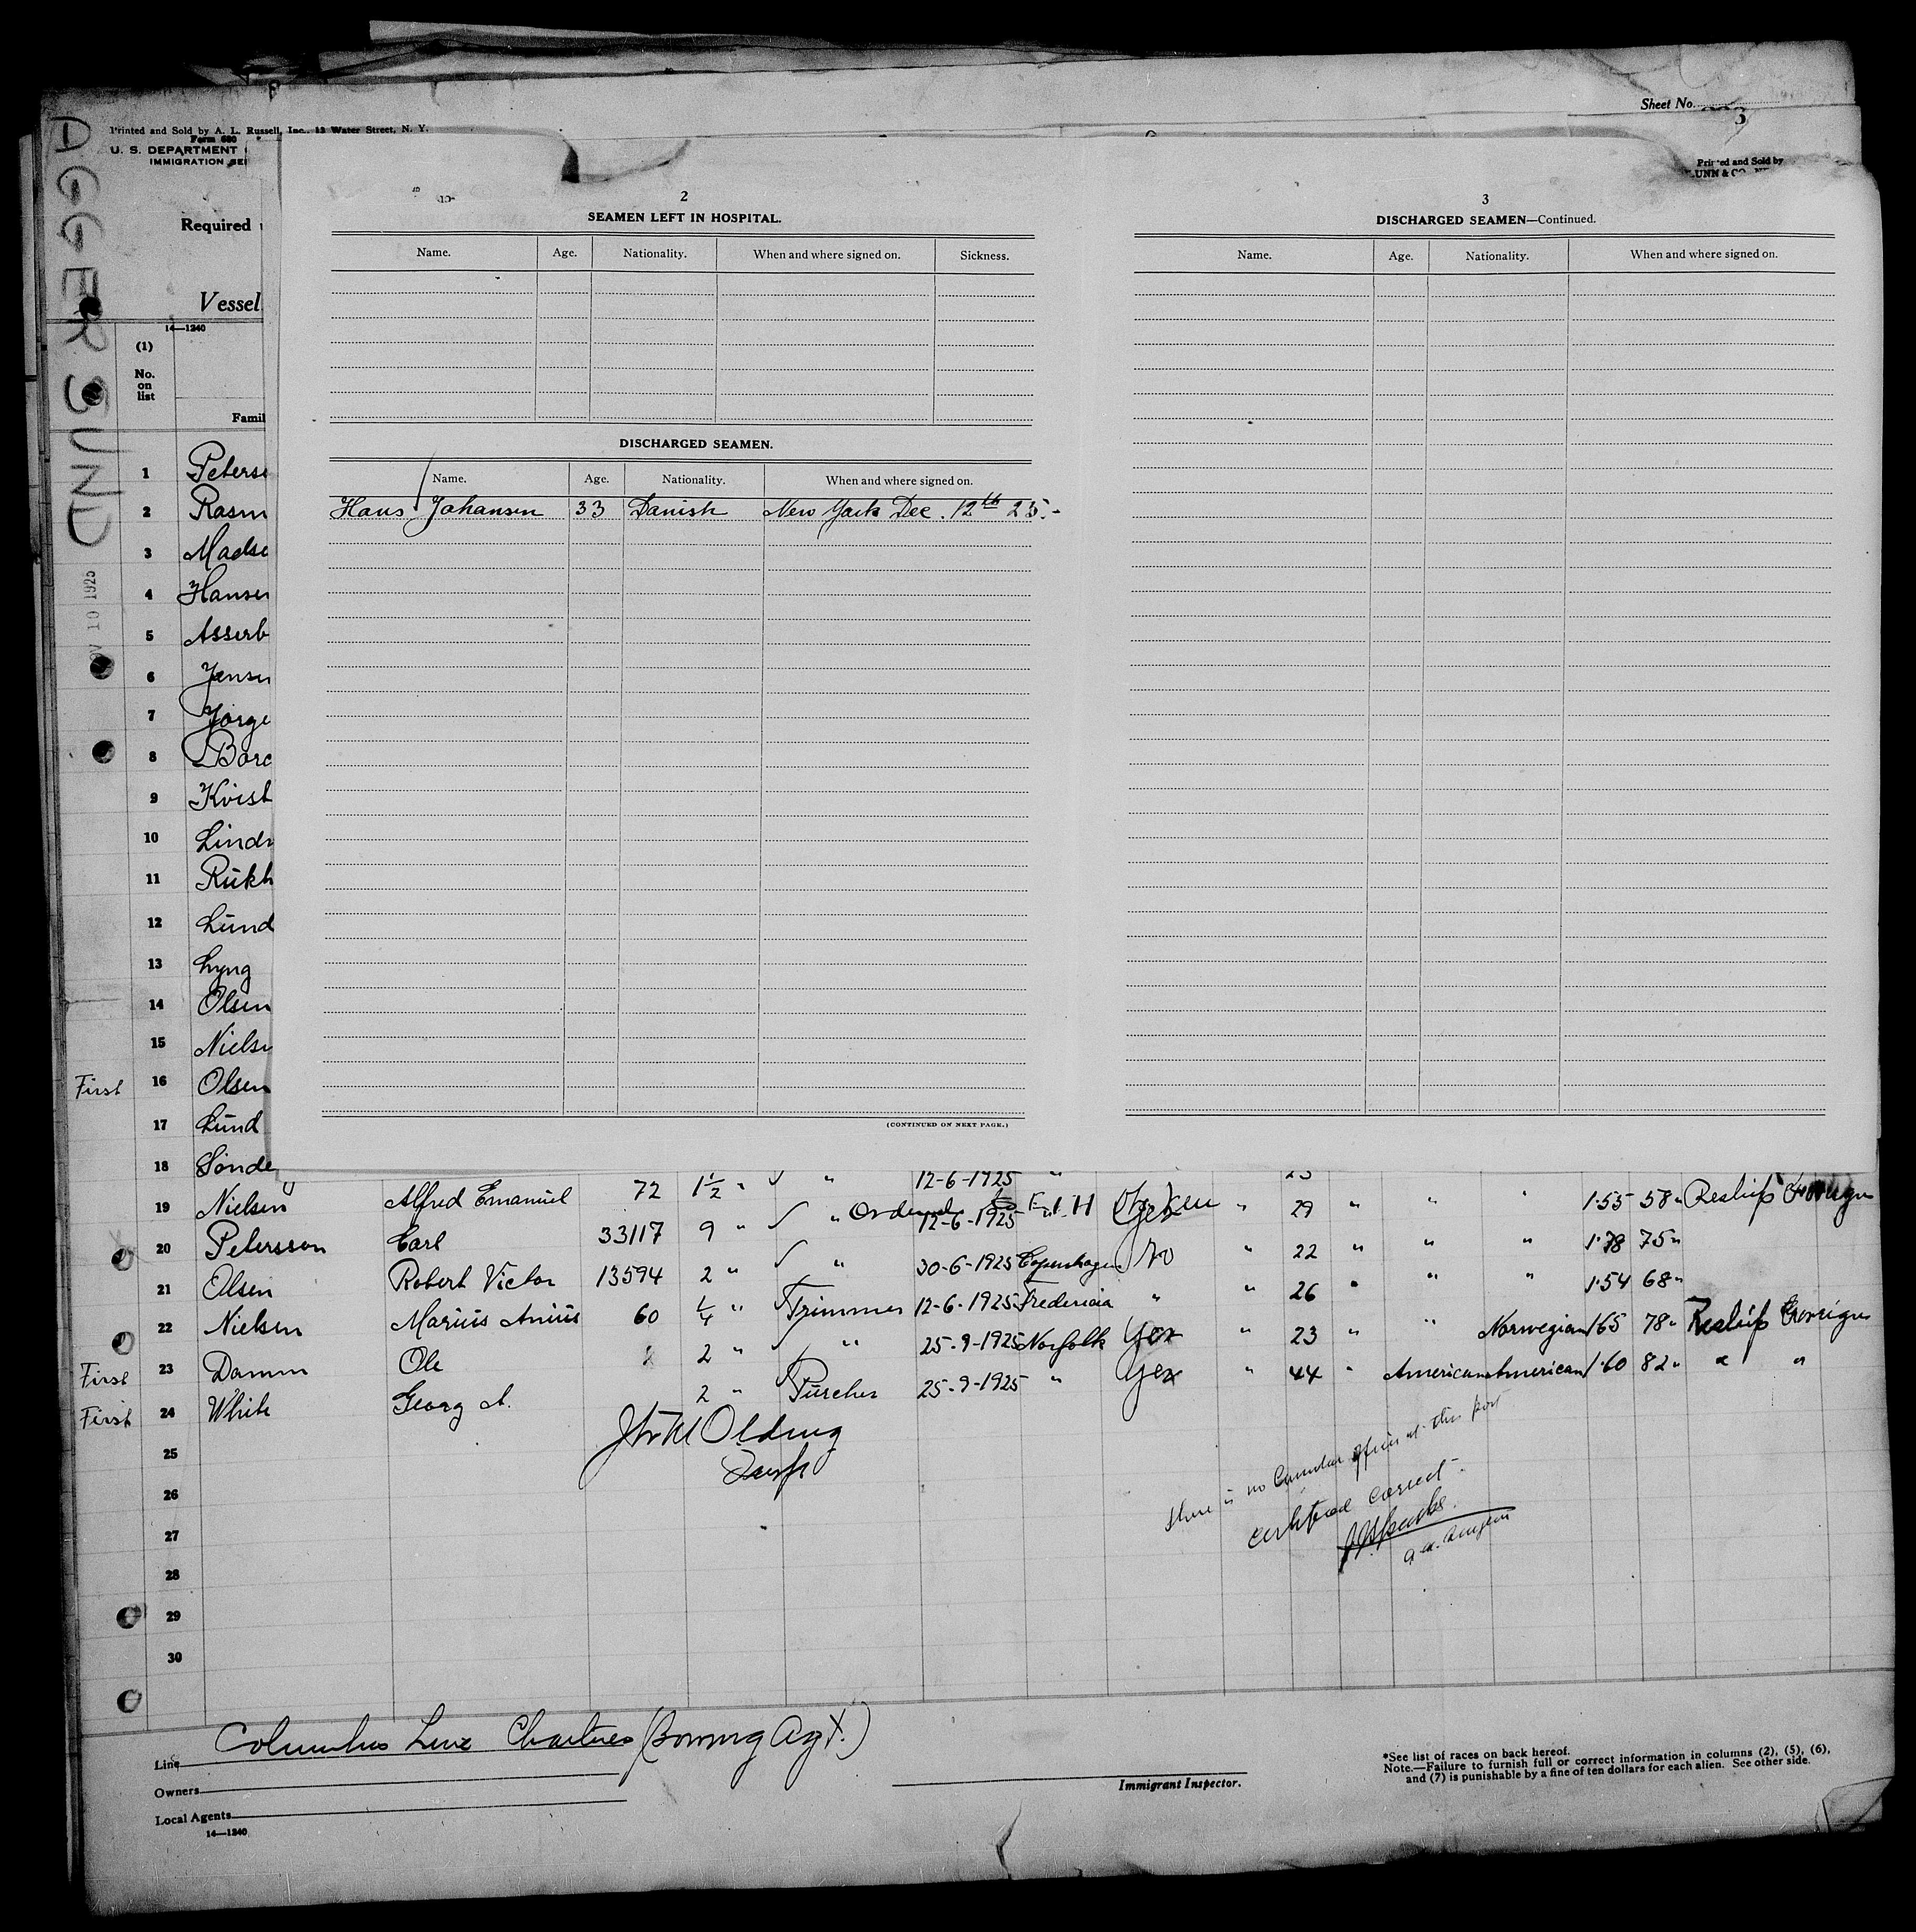 AGGERSUND
NOV 10 1925
Sheet No. 3
Printed and Sold by A. L. Russell, Inc., 12 Water Street, N. Y.
Form 680
U. S. DEPARTMENT
IMMIGRATION SE
Printed and Sold by
UNN & CO
Required
Vessel
14—1240
(1)
No.
on
list
Famil
2
SEAMEN LEFT IN HOSPITAL.
Name. Age. Nationality. When and where signed on. Sickness.
DISCHARGED SEAMEN.
Name. Age. Nationality. When and where signed on.
Hans Johansen 33 Danish New York Dec. 12th 25.-
(CONTINUED ON NEXT PAGE.)
3
DISCHARGED SEAMEN—Continued.
Name. Age. Nationality. When and where signed on.
1 Peterse
2 Rasm
3 Madse
4 Hansen
5 Asserb
6 Jensen
7 Jörge
8 Borc
9 Kvist
10 Lindr
11 Rükh
12 Lünd
13 Lyng
14 Olsen
15 Nielse
First 16 Olsen
17 Lünd
18 Sonde 12-6-1925 " 23
19 Nielsen Alfred Emanuel 72 1 1/2 " " 12-6-1925 Yes " 29 " " " 1.55 58" Reship Foreign
20 Petersson Carl 33117 9 " " 30-6-1925 Copenhagen No " 22 " " " 1.78 75"
21 Olsen Robert Victor 13594 2 " Trimmer 12-6-1925 Fredericia " " 26 " " " 1.54 68"
22 Nielsen Marius Anius 60 1/4 " " 25-9-1925 Norfolk Yes " 23 " " Norwegian 1.65 78" Reship Foreign
First 23 Damm Ole 2 " 25-9-1925 " Yes " 44 " American American 1.60 82" " "
First 24 White Georg A. 2 "
25
26
27
28
29
30
There is no Consular Officer at this port
Certified correct.
Columbus Line Charterers (Bowring Agt.)
Line
Owners
Local Agents
14—1240
Immigrant Inspector.
*See list of races on back hereof.
Note.—Failure to furnish full or correct information in columns (2), (5), (6),
and (7) is punishable by a fine of ten dollars for each alien. See other side.